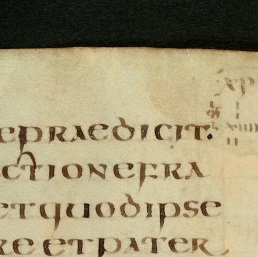 epraedicit.
ctionefra
etquodipse
re etpater